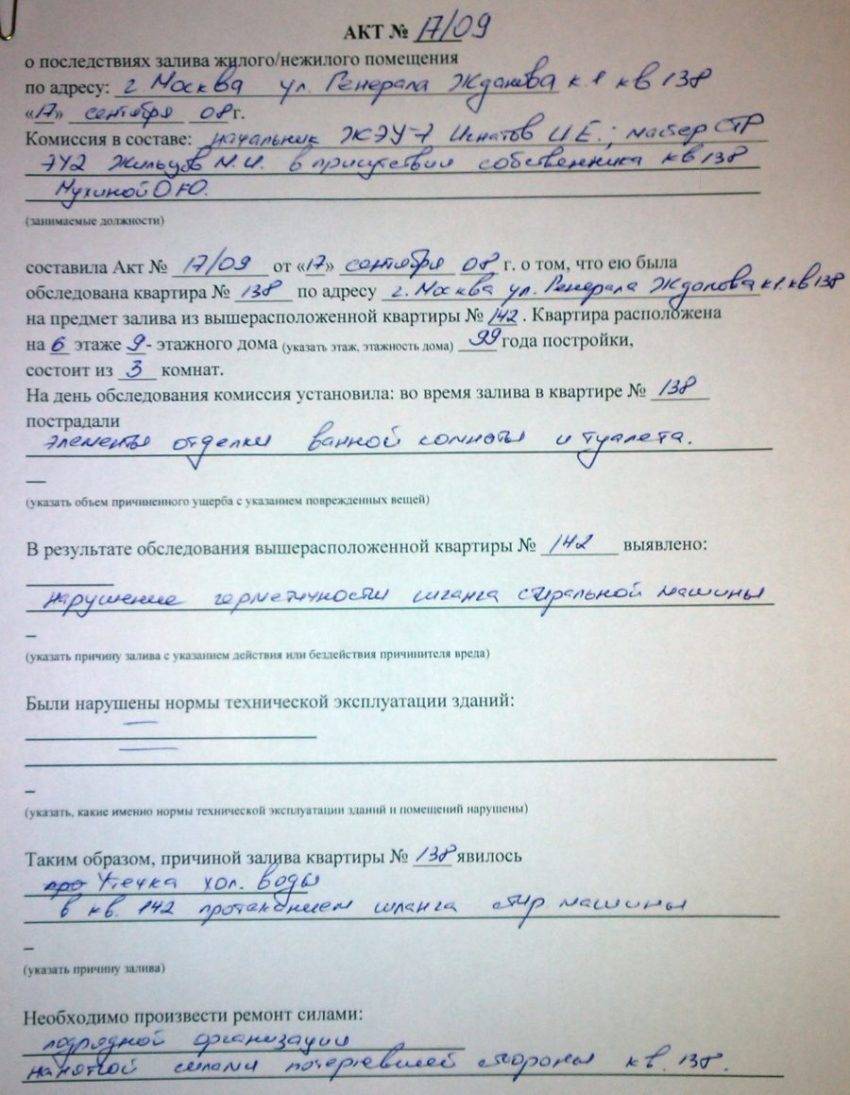 АКТ № 17/09
о последствиях залива жилого/нежилого помещения
по адресу: г Москва ул. Генерала Жданова к.1 кв 138
«17» сентября 08г.
Комиссия в составе: начальник ЖЭУ-7 Игнатов И.Е.; мастер СТР
ЭУ2 Жильцов М.И. в присутствии собственника кв 138
Мухиной О Ю.
(занимаемые должности)
составила Акт № 17/09 от «17» сентября 08 г. о том, что ею была
обследована квартира № 138 по адресу г. Москва ул. Генерала Жданова к1.кв138
на предмет залива из вышерасположенной квартиры № 142. Квартира расположена
на 6 этаже 9- этажного дома (указать этаж, этажность дома) 99 года постройки,
состоит из 3 комнат.
На день обследования комиссия установила: во время залива в квартире № 138
пострадали
элементы отделки ванной комнаты и туалета.
–
(указать объем причиненного ущерба с указанием поврежденных вещей)
В результате обследования вышерасположенной квартиры № 142 выявлено:
нарушение герметичности шланга стиральной машины
–
(указать причину залива с указанием действия или бездействия причинителя вреда)
Были нарушены нормы технической эксплуатации зданий:
—
—
–
(указать, какие именно нормы технической эксплуатации зданий и помещений нарушены)
Таким образом, причиной залива квартиры № 138 явилось
Утечка хол. воды
в кв. 142 протеканием шланга стир машины
–
(указать причину залива)
Необходимо произвести ремонт силами:
подрядной организации
нанятой силами потерпевшей стороны кв. 138.